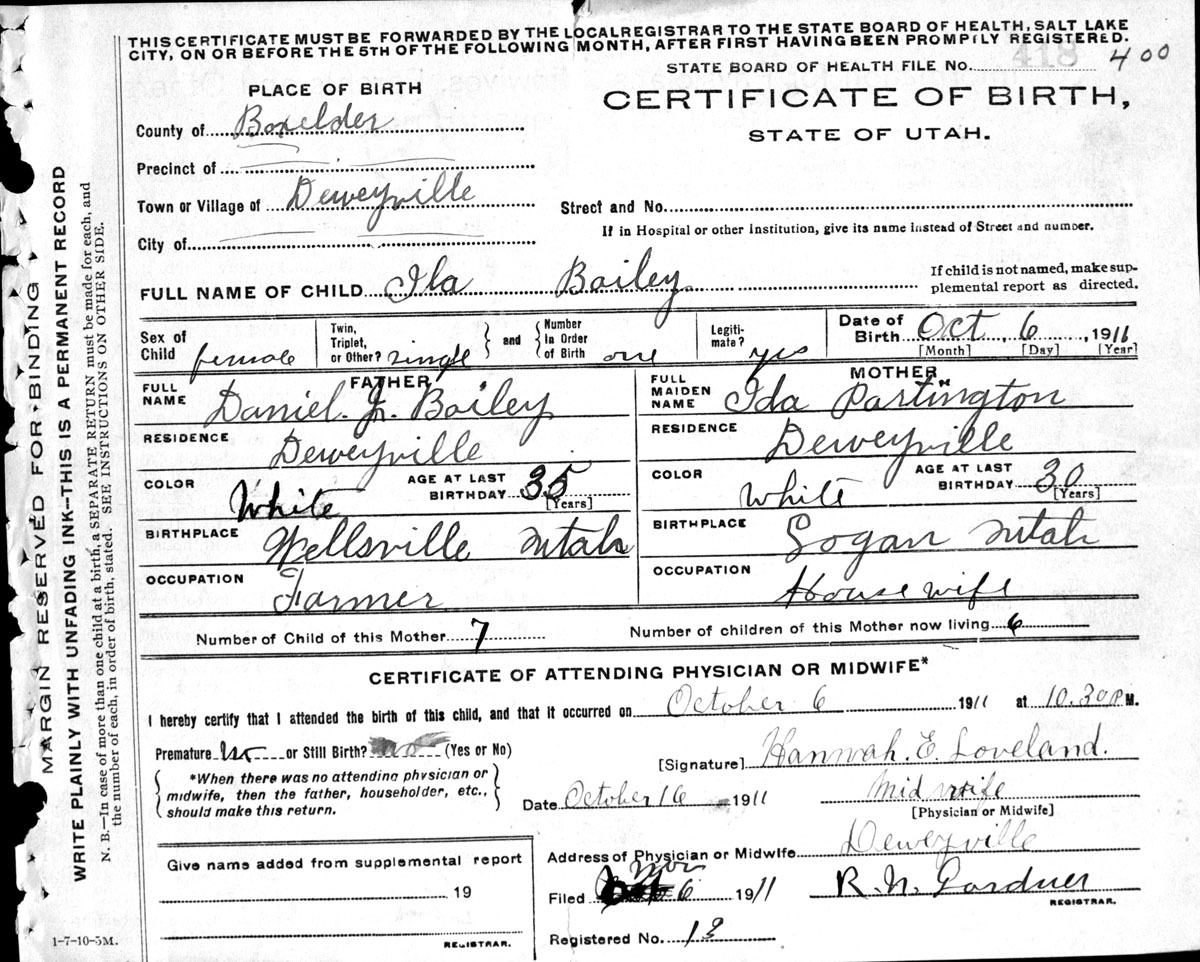 THIS CERTIFICATE MUST BE FORWARDED BY THE LOCAL REGISTRAR TO THE STATE BOARD OF HEALTH, SALT LAKE
CITY, ON OR BEFORE THE 5TH OF THE FOLLOWING MONTH, AFTER FIRST HAVING BEEN PROMPTLY REGISTERED.
STATE BOARD OF HEALTH FILE NO. 418 400
PLACE OF BIRTH
CERTIFICATE OF BIRTH,
STATE OF UTAH.
County of Boxelder
Precinct of
Town or Village of Deweyville
Street and No.
If in Hospital or other Institution, give its name instead of Street and number.
City of
FULL NAME OF CHILD Ila Bailey
If child is not named, make sup-
plemental report as directed.
Sex of Child female
Twin, Triplet, or Other? single
and
Number In Order of Birth one
Legiti-mate? yes
Date of Birth Oct 6, 1911
[Month] [Day] [Year]
FATHER
FULL NAME Daniel. Jr. Bailey
RESIDENCE Deweyville
COLOR White
AGE AT LAST BIRTHDAY 35
[Years]
BIRTHPLACE Wellsville Utah
OCCUPATION Farmer
MOTHER
FULL MAIDEN NAME Ida Partington
RESIDENCE Deweyville
COLOR White
AGE AT LAST BIRTHDAY 30
[Years]
BIRTHPLACE Logan Utah
OCCUPATION House wife
Number of Child of this Mother 7
Number of children of this Mother now living 6
CERTIFICATE OF ATTENDING PHYSICIAN OR MIDWIFE*
I hereby certify that I attended the birth of this child, and that it occurred on October 6 1911 at 10.30 P M.
Premature no or Still Birth? no (Yes or No)
[Signature] Hannah. E. Loveland.
*When there was no attending physician or
midwife, then the father, householder, etc.,
should make this return.
Date October 16 1911
Mid wife
[Physician or Midwife]
Address of Physician or Midwife Deweyville
Give name added from supplemental report
19
REGISTRAR.
Filed Nov 6 1911
R. N. Gardner
REGISTRAR.
Registered No. 13
1-7-10-5M.
MARGIN RESERVED FOR BINDING
WRITE PLAINLY WITH UNFADING INK—THIS IS A PERMANENT RECORD
N. B.—In case of more than one child at a birth, a SEPARATE RETURN must be made for each, and
the number of each, in order of birth, stated. SEE INSTRUCTIONS ON OTHER SIDE.